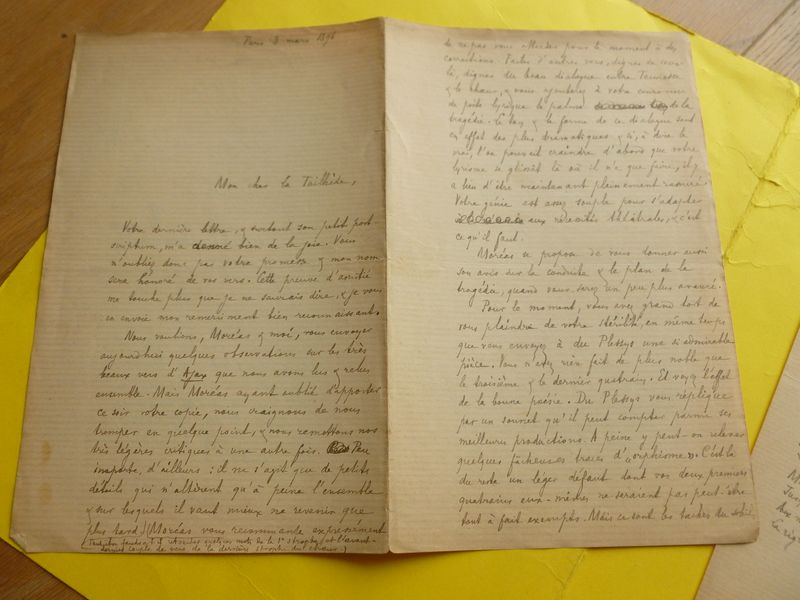 Paris 3 mars 1896
Mon cher La Tailhède,
Votre dernière lettre, & surtout son petit post-
scriptum, m'a donné bien de la joie. Vous
n'oubliez donc pas votre promesse & mon nom
sera honoré de vos vers. Cette preuve d'amitié
me touche plus que je ne saurais dire, & je vous
en envoie mon remerciment bien reconnaissant.
Nous voulions, Moréas & moi, vous envoyer
aujourd'hui quelques observations sur les très
beaux vers d'Ajax que nous avons lus & relus
ensemble. Mais Moréas ayant oublié d'apporter
ce soir votre copie, nous craignons de nous
tromper en quelque point, & nous remettons nos
très légères critiques à une autre fois. Peu
importe, d'ailleurs : il ne s'agit que de petits
détails qui n'altèrent qu'à peine l'ensemble
& sur lesquels il vaut mieux ne revenir que
plus tard. (Moréas vous recommande expressément
(Toutefois faudrait-il retoucher quelques mots de la 1e strophe et l'avant-
dernier couple de vers de la dernière strophe du chœur.)
de ne pas vous attarder pour le moment à des
corrections. Faites d'autres vers, dignes de ceux-
là, dignes du beau dialogue entre Tecmesse
& le chœur, & vous ajouterez à votre couronne
de poète lyrique la palme de la
tragédie. Le ton & la forme de ce dialogue sont
en effet des plus dramatiques & si, à dire le
vrai, l'on pouvait craindre d'abord que votre
lyrisme se glissât là où il n'a que faire, il y
a lieu d'être maintenant pleinement rassuré.
Votre génie est assez souple pour s'adapter
aux nécessités théâtrales, & c'est
ce qu'il faut.
Moréas se propose de vous donner aussi
son avis sur la conduite & le plan de la
tragédie, quand vous serez un peu plus avancé.
Pour le moment, vous avez grand tort de
vous plaindre de votre stérilité, en même temps
que vous envoyez à du Plessys une si admirable
pièce. Vous n'avez rien fait de plus noble que
le troisième & le dernier quatrain. Et voyez l'effet
de la bonne poésie. Du Plessys vous réplique
par un sonnet qu'il peut compter parmi ses
meilleures productions. A peine y peut-on relever
quelques fâcheuses traces d'"orphisme". C'est là
du reste un léger défaut dont vos deux premiers
quatrains eux-mêmes ne seraient pas peut-être
tout à fait exempts. Mais ce sont les taches du soleil